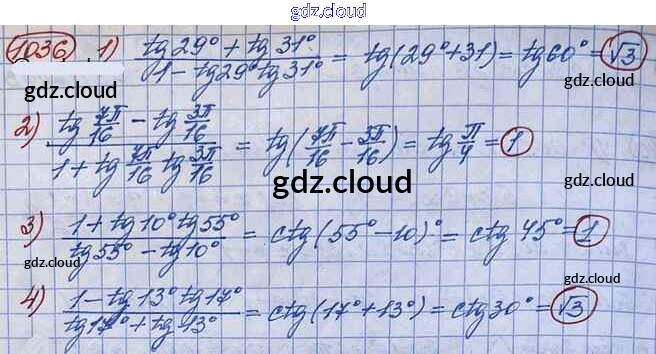 gdz.cloud
1036) 1) (tg 29° + tg 31°) / (1 - tg 29° tg 31°) = tg (29° + 31) = tg 60° = √3
gdz.cloud
gdz.cloud
2) (tg 7π/16 - tg 3π/16) / (1 + tg 7π/16 tg 3π/16) = tg (7π/16 - 3π/16) = tg π/4 = 1
gdz.cloud
gdz.cloud
3) (1 + tg 10° tg 55°) / (tg 55° - tg 10°) = ctg (55° - 10)° = ctg 45° = 1
gdz.cloud
gdz.cloud
4) (1 - tg 13° tg 17°) / (tg 17° + tg 13°) = ctg (17° + 13°) = ctg 30° = √3
gdz.cloud
gdz.cloud